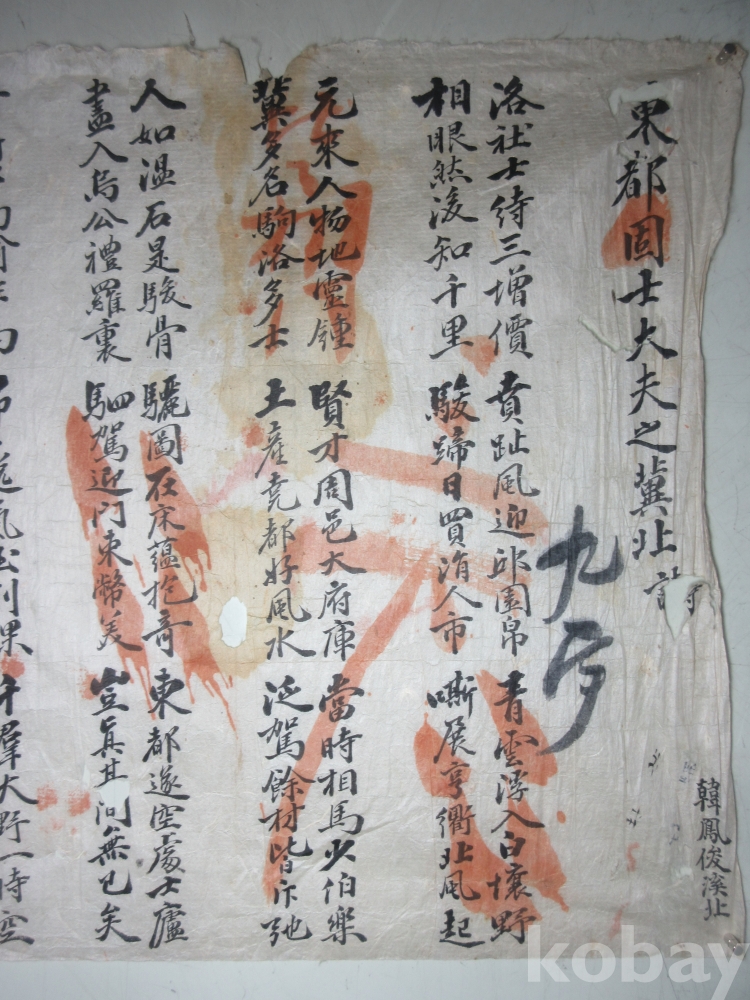 東都固士大夫之冀北 詩
九
韓鳳俊溪北
洛社士待三增價 賁趾風迎邱園帛 青雲浮入白壤野
相眼然後知千里 駿蹄日買涓人市 嘶展亨衢北風起
元來人物地靈鍾 賢才周邑大府庫 當時相馬少伯樂
冀多名駒洛多士 土産堯都好風水 泛駕餘材皆斥弛
人如溫石是駿骨 驪圖在床蘊抱奇 東都遂空處士廬
盡入烏公禮羅裏 駟駕迎門束幣美 豈眞其間無已矣
千羣大野一時空
kobay